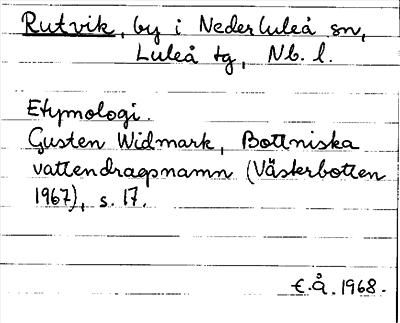 Rutvik, by i Nederluleå sn,
Luleå tg, Nb. l.
Etymologi.
Gusten Widmark, Bottniska
vattendragsnamn (Västerbotten
1967), s. 17.
E.Å. 1968.